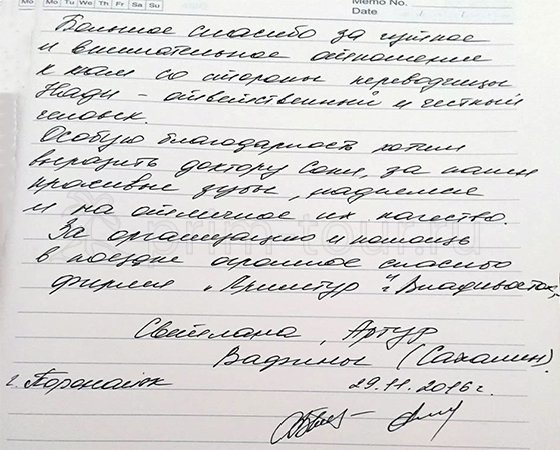 Mo Mo Tu We Th Fr Sa Su
Memo No.
Date / /
Большое спасибо за чуткое
и внимательное отношение
к нам со стороны переводчицы
Нади - ответственный и честный
человек.
Особую благодарность хотим
выразить доктору Соня, за наши
красивые зубы, надеемся
и на отличное их качество.
За организацию и помощь
в поездке огромное спасибо
фирме "Примтур" г. Владивосток
Светлана, Артур
(Сахалин)
г. Поронайск 29.11.2016 г.
prim-tour.ru